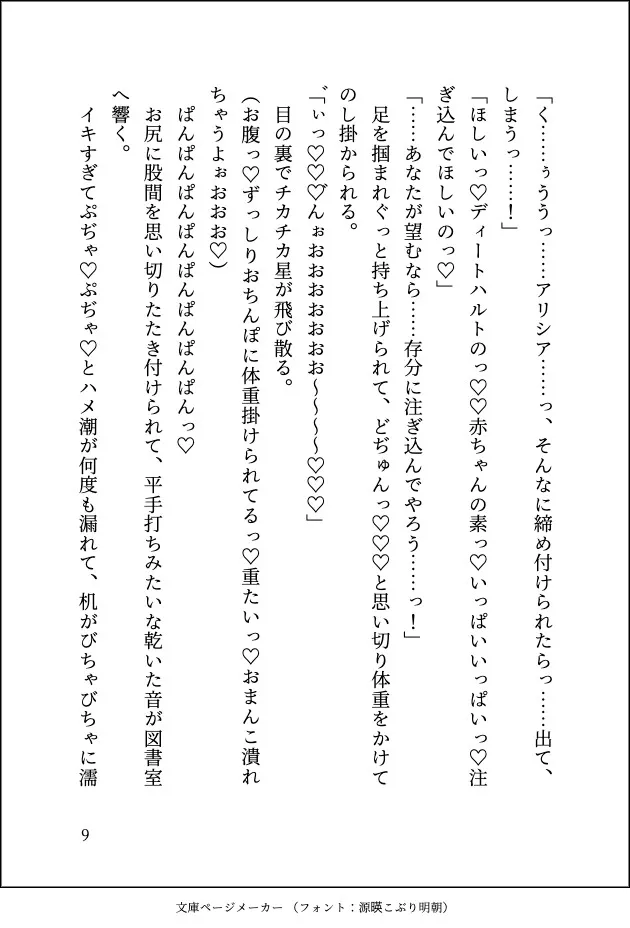 「く……ぅううっ……アリシア……っ、そんなに締め付けられたらっ……出て、
しまうっ……！」
「ほしいっ♡ディートハルトのっ♡♡赤ちゃんの素っ♡いっぱいいっぱいっ♡注
ぎ込んでほしいのっ♡」
「……あなたが望むなら……存分に注ぎ込んでやろう……っ！」
　足を掴まれぐっと持ち上げられて、どぢゅんっ♡♡♡と思い切り体重をかけて
のし掛かられる。
「゛ぃっ♡♡♡゛んぉおおおおおおお～～～～♡♡♡」
　目の裏でチカチカ星が飛び散る。
（お腹っ♡ずっしりおちんぽに体重掛けられてるっ♡重たいっ♡おまんこ潰れ
ちゃうよぉおおお♡）
　ぱんぱんぱんぱんぱんぱんぱんぱんっ♡
　お尻に股間を思い切りたたき付けられて、平手打ちみたいな乾いた音が図書室
へ響く。
　イキすぎてぷぢゃ♡ぷぢゃ♡とハメ潮が何度も漏れて、机がびちゃびちゃに濡
9
文庫ページメーカー （フォント：源暎こぶり明朝）